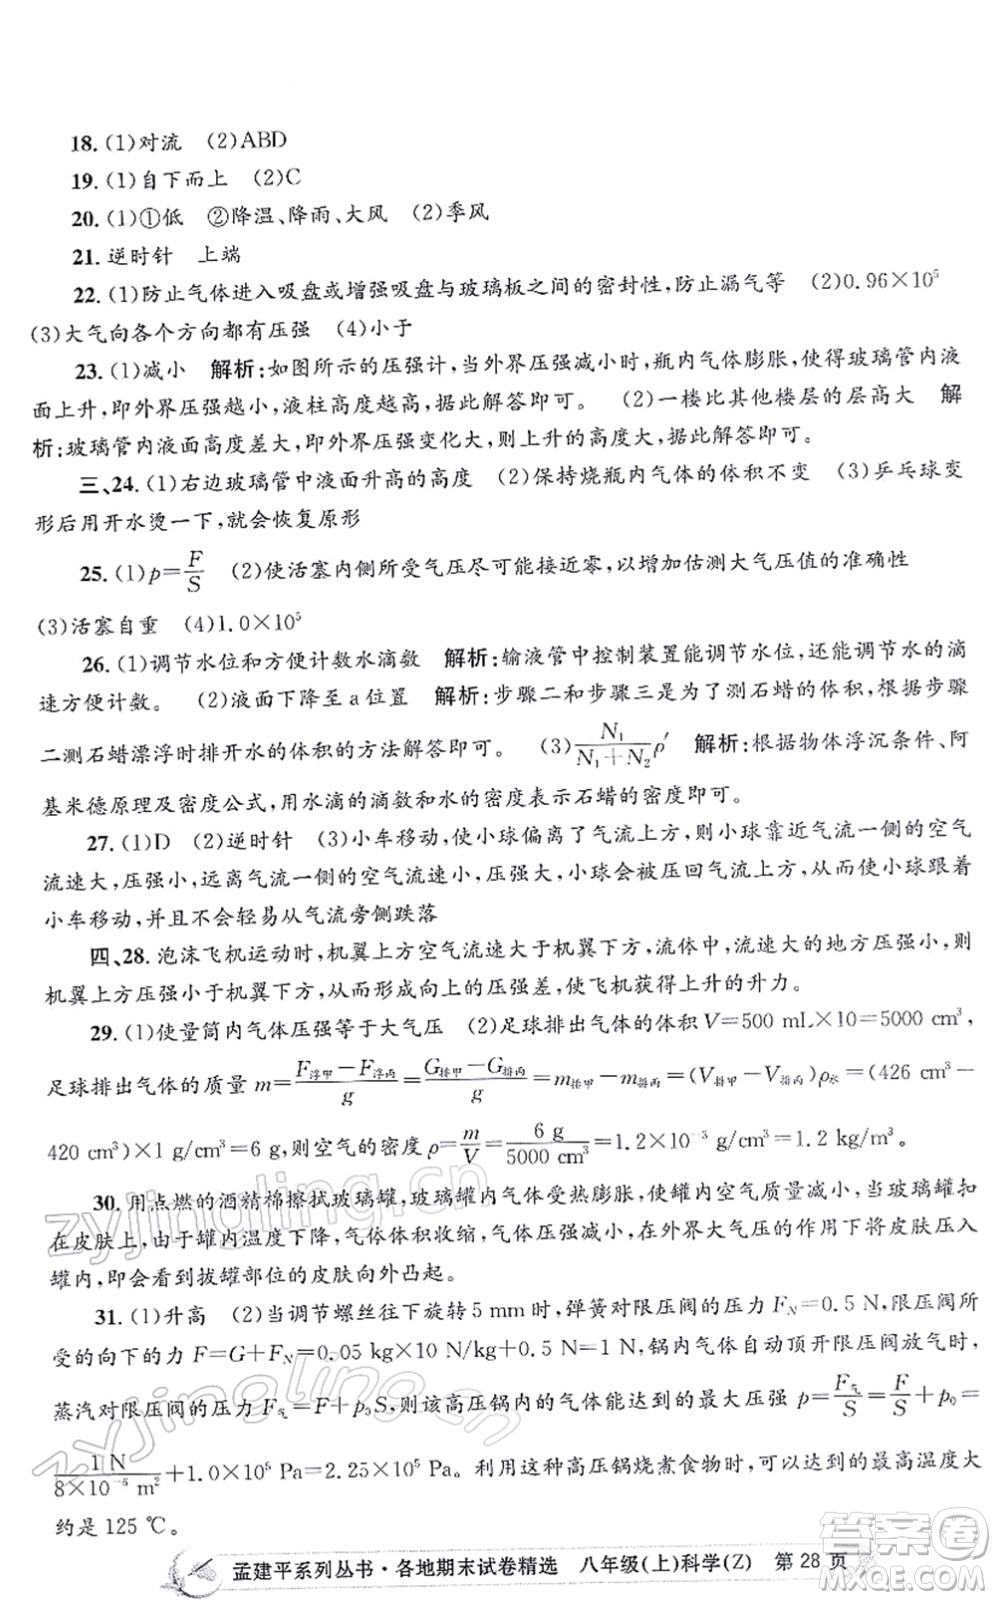 18.(1)对流 (2)ABD
19.(1)自下而上 (2)C
20.(1)①低 ②降温、降雨、大风 (2)季风
21.逆时针 上端
22.(1)防止气体进入吸盘或增强吸盘与玻璃板之间的密封性,防止漏气等 (2)0.96×10⁵
(3)大气向各个方向都有压强 (4)小于
23.(1)减小 解析:如图所示的压强计,当外界压强减小时,瓶内气体膨胀,使得玻璃管内液
面上升,即外界压强越小,液柱高度越高,据此解答即可。 (2)一楼比其他楼层的层高大 解
析:玻璃管内液面高度差大,即外界压强变化大,则上升的高度大,据此解答即可。
三、24.(1)右边玻璃管中液面升高的高度 (2)保持烧瓶内气体的体积不变 (3)乒乓球变
形后用开水烫一下,就会恢复原形
25.(1)p=F/S (2)使活塞内侧所受气压尽可能接近零,以增加估测大气压值的准确性
(3)活塞自重 (4)1.0×10⁵
26.(1)调节水位和方便计数水滴数 解析:输液管中控制装置能调节水位,还能调节水的滴
速方便计数。 (2)液面下降至a位置 解析:步骤二和步骤三是为了测石蜡的体积,根据步骤
二测石蜡漂浮时排开水的体积的方法解答即可。 (3)N₁/(N₁+N₂)ρ′ 解析:根据物体浮沉条件、阿
基米德原理及密度公式,用水滴的滴数和水的密度表示石蜡的密度即可。
27.(1)D (2)逆时针 (3)小车移动,使小球偏离了气流上方,则小球靠近气流一侧的空气
流速大,压强小,远离气流一侧的空气流速小,压强大,小球会被压回气流上方,小球跟着
小车移动,并且不会轻易从气流旁侧跌落
四、28.泡沫飞机运动时,机翼上方空气流速大于机翼下方,流体中,流速大的地方压强小,则
机翼上方压强小于机翼下方,从而形成向上的压强差,使飞机获得上升的升力。
29.(1)使量筒内气体压强等于大气压 (2)足球排出气体的体积V=500 mL×10=5000 cm³,
足球排出气体的质量m=(F浮甲−F浮丙)/g=(G排甲−G排丙)/g=m排甲−m排丙=(V排甲−V排丙)ρ水=(426 cm³−
420 cm³)×1 g/cm³=6 g,则空气的密度ρ=m/V=6 g/5000 cm³=1.2×10⁻³ g/cm³=1.2 kg/m³。
30.用点燃的酒精棉擦拭玻璃罐,玻璃罐内气体受热膨胀,使罐内空气质量减小,当玻璃罐扣
在皮肤上,由于罐内温度下降,气体体积收缩,气体压强减小,在外界大气压的作用下将皮肤压入
罐内,即会看到拔罐部位的皮肤向外凸起。
31.(1)升高 (2)当调节螺丝往下旋转5 mm时,弹簧对限压阀的压力F_N=0.5 N,限压阀所
受的向下的力F=G+F_N=0.05 kg×10 N/kg+0.5 N=1 N,锅内气体自动顶开限压阀放气时,
蒸汽对限压阀的压力F气=F+p₀S,则该高压锅内的气体能达到的最大压强p=F气/S=F/S+p₀=
1 N/(8×10⁻⁶ m²)+1.0×10⁵ Pa=2.25×10⁵ Pa。利用这种高压锅烧煮食物时,可以达到的最高温度大
约是125 ℃。
孟建平系列丛书·各地期末试卷精选 八年级(上)科学(Z) 第28页
zyjingling.cn
zyjingling.cn
答案圈
MXQE.COM